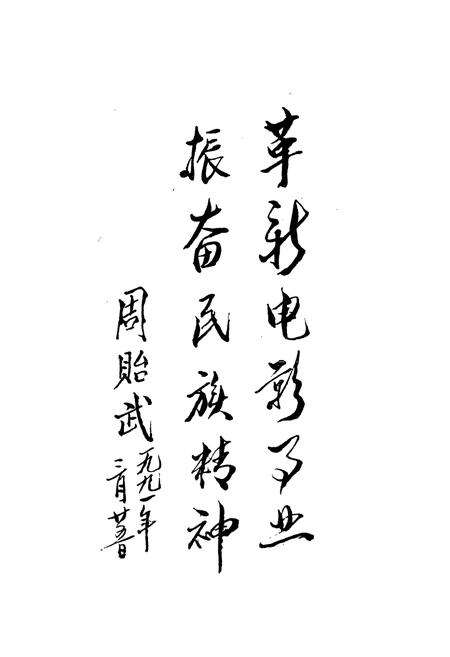 革新电影事业
振奋民族精神
周貽武
一九九一年
三月廿五日